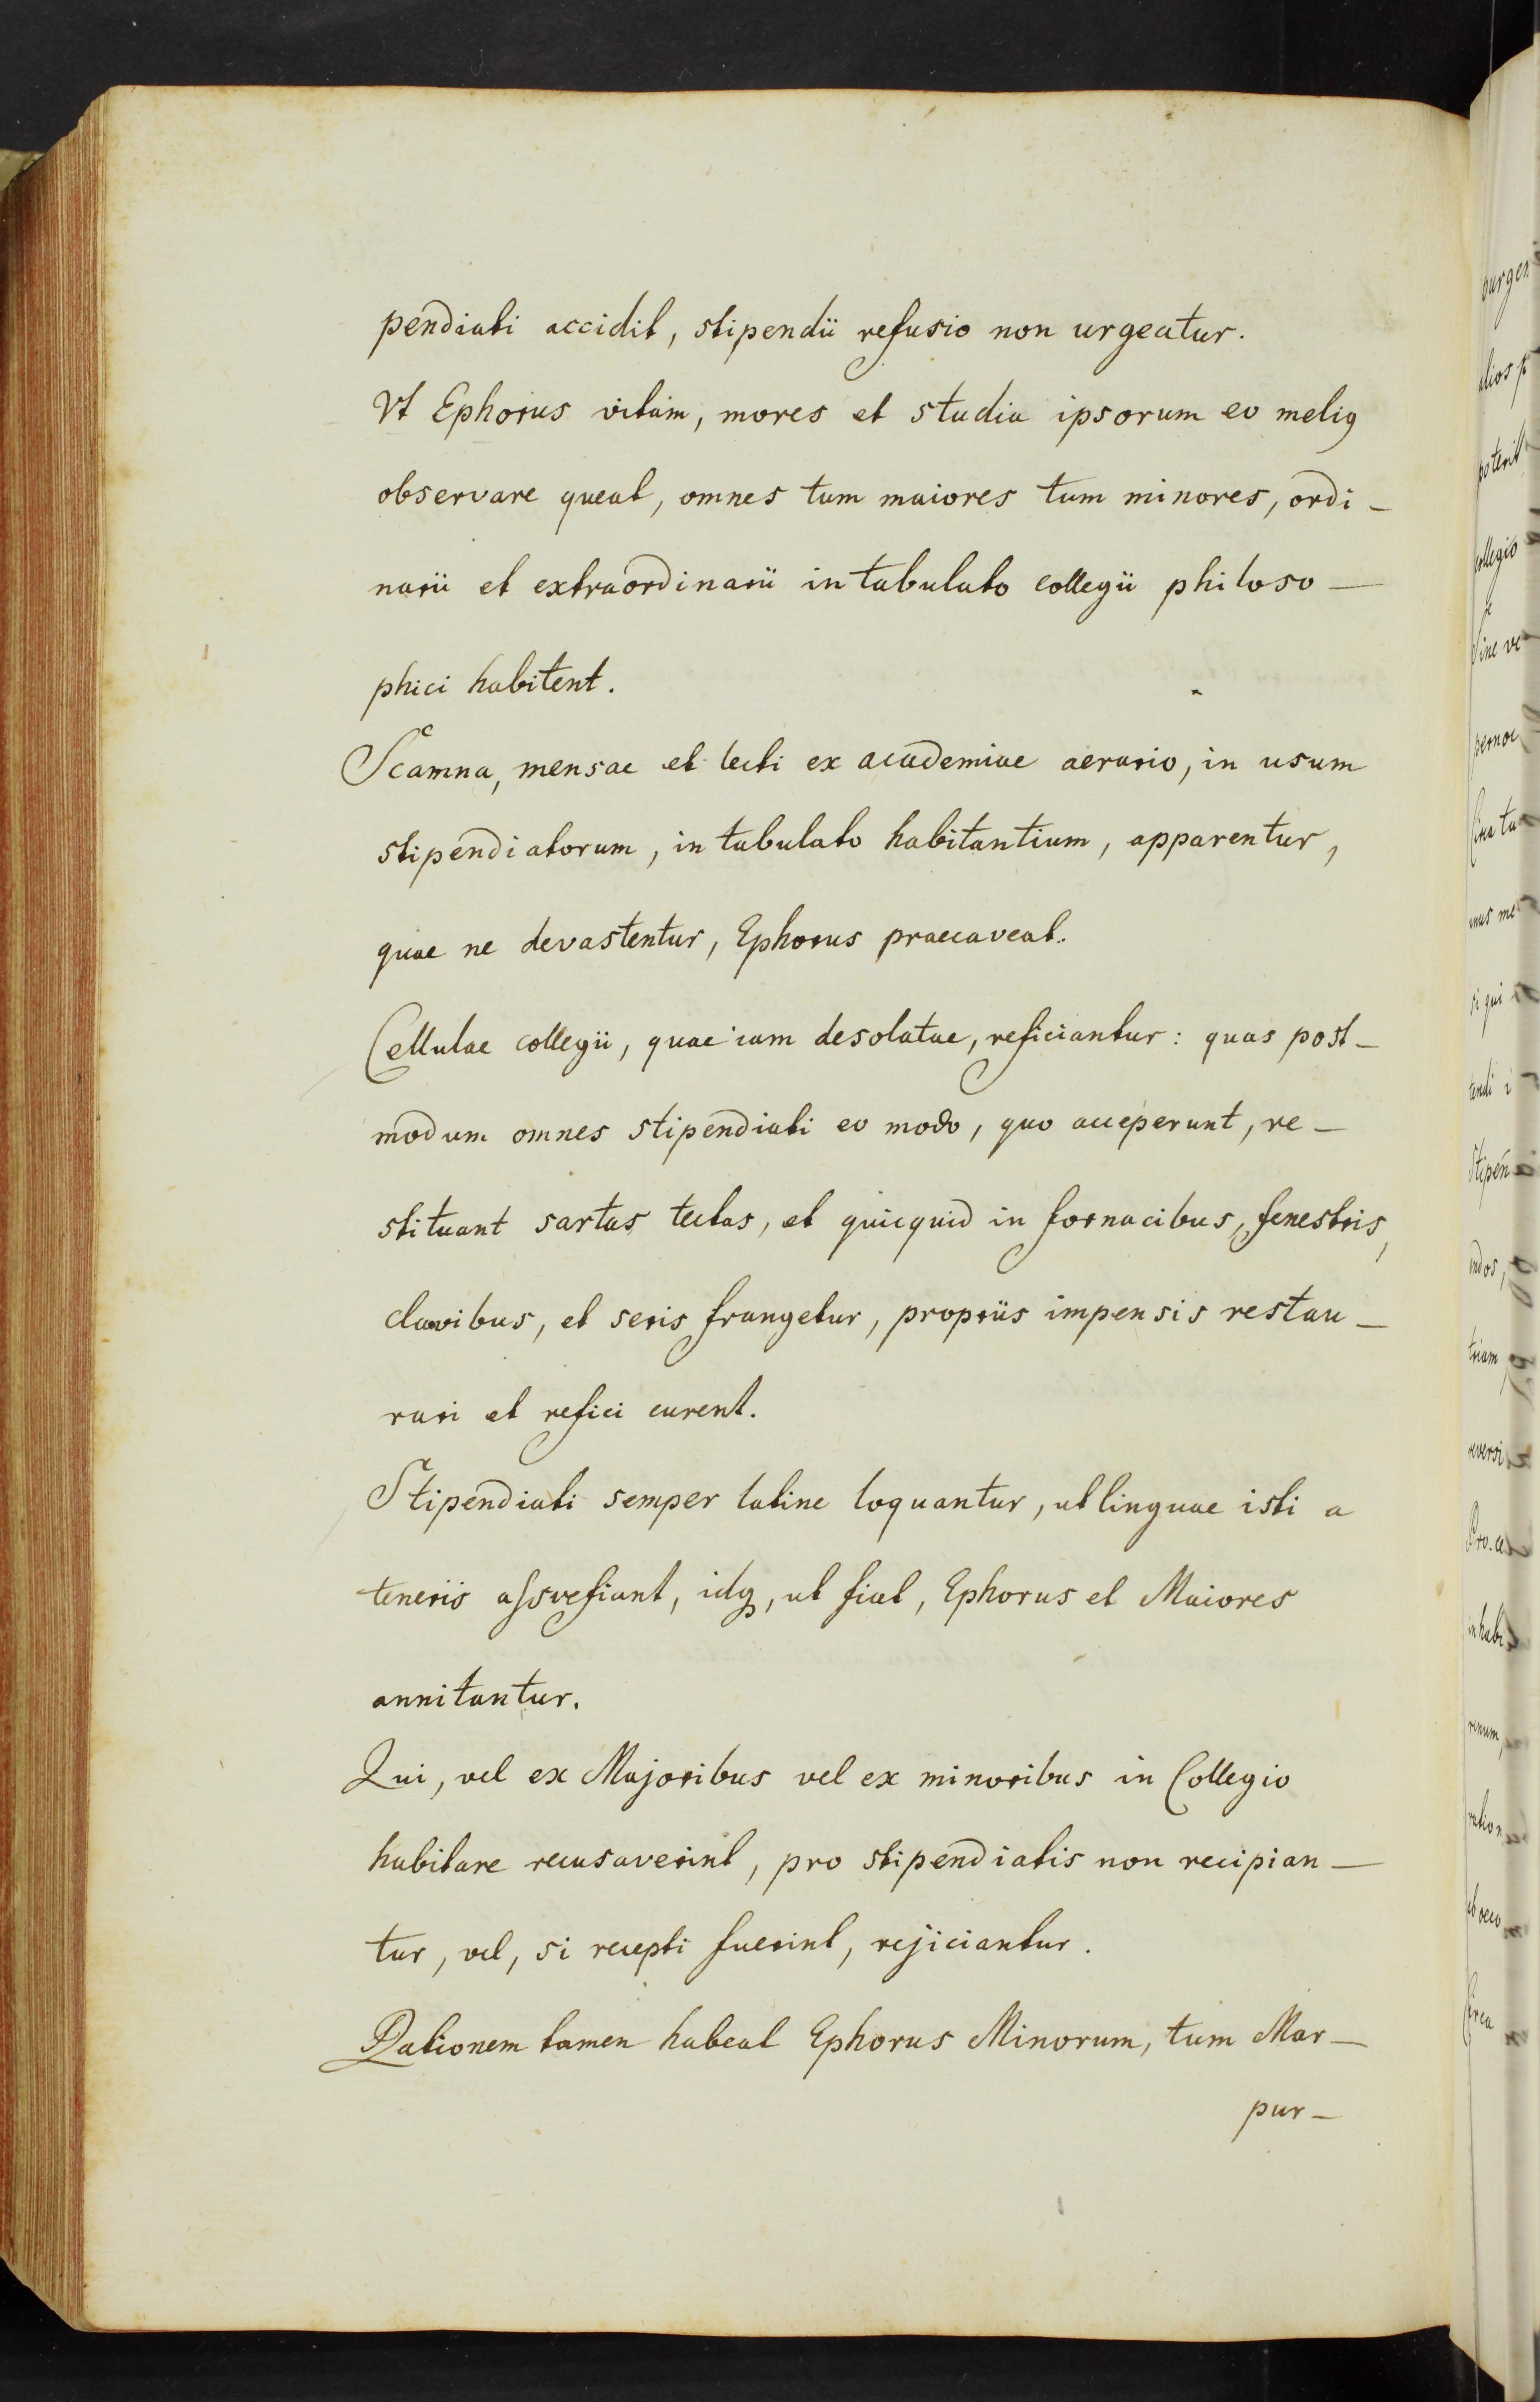 pendiati accidit, stipendii refusio non urgeatur.
Vt Ephorus vitam, mores et studia ipsorum eo meliꝰ
observare queat, omnes tum maiores tum minores, ordi-
narii et extraordinarii in tabulato collegii philoso-
phici habitent.
Scamna, mensae et lecti ex academiae aerario, in usum
stipendiatorum, in tabulato habitantium, apparentur,
quae ne devastentur, Ephorus praecaveat.
Cellulae collegii, quae iam desolatae, reficiantur: quas post-
modum omnes stipendiati eo modo, quo acceperunt, re-
stituant sartas tectas, et quicquid in fornacibus, fenestris,
clavibus, et seris frangetur, propriis impensis restau-
rari et refici curent.
Stipendiati semper latine loquantur, ut linguae isti a
teneris aſsvefiant, idq, ut fiat, Ephorus et Maiores
annitantur.
Qui, vel ex Majoribus vel ex minoribus in Collegio
habitare recusaverint, pro stipendiatis non recipian-
tur, vel, si recepti fuerint, rejiciantur.
Rationem tamen habeat Ephorus Minorum, tum Mar-
pur-